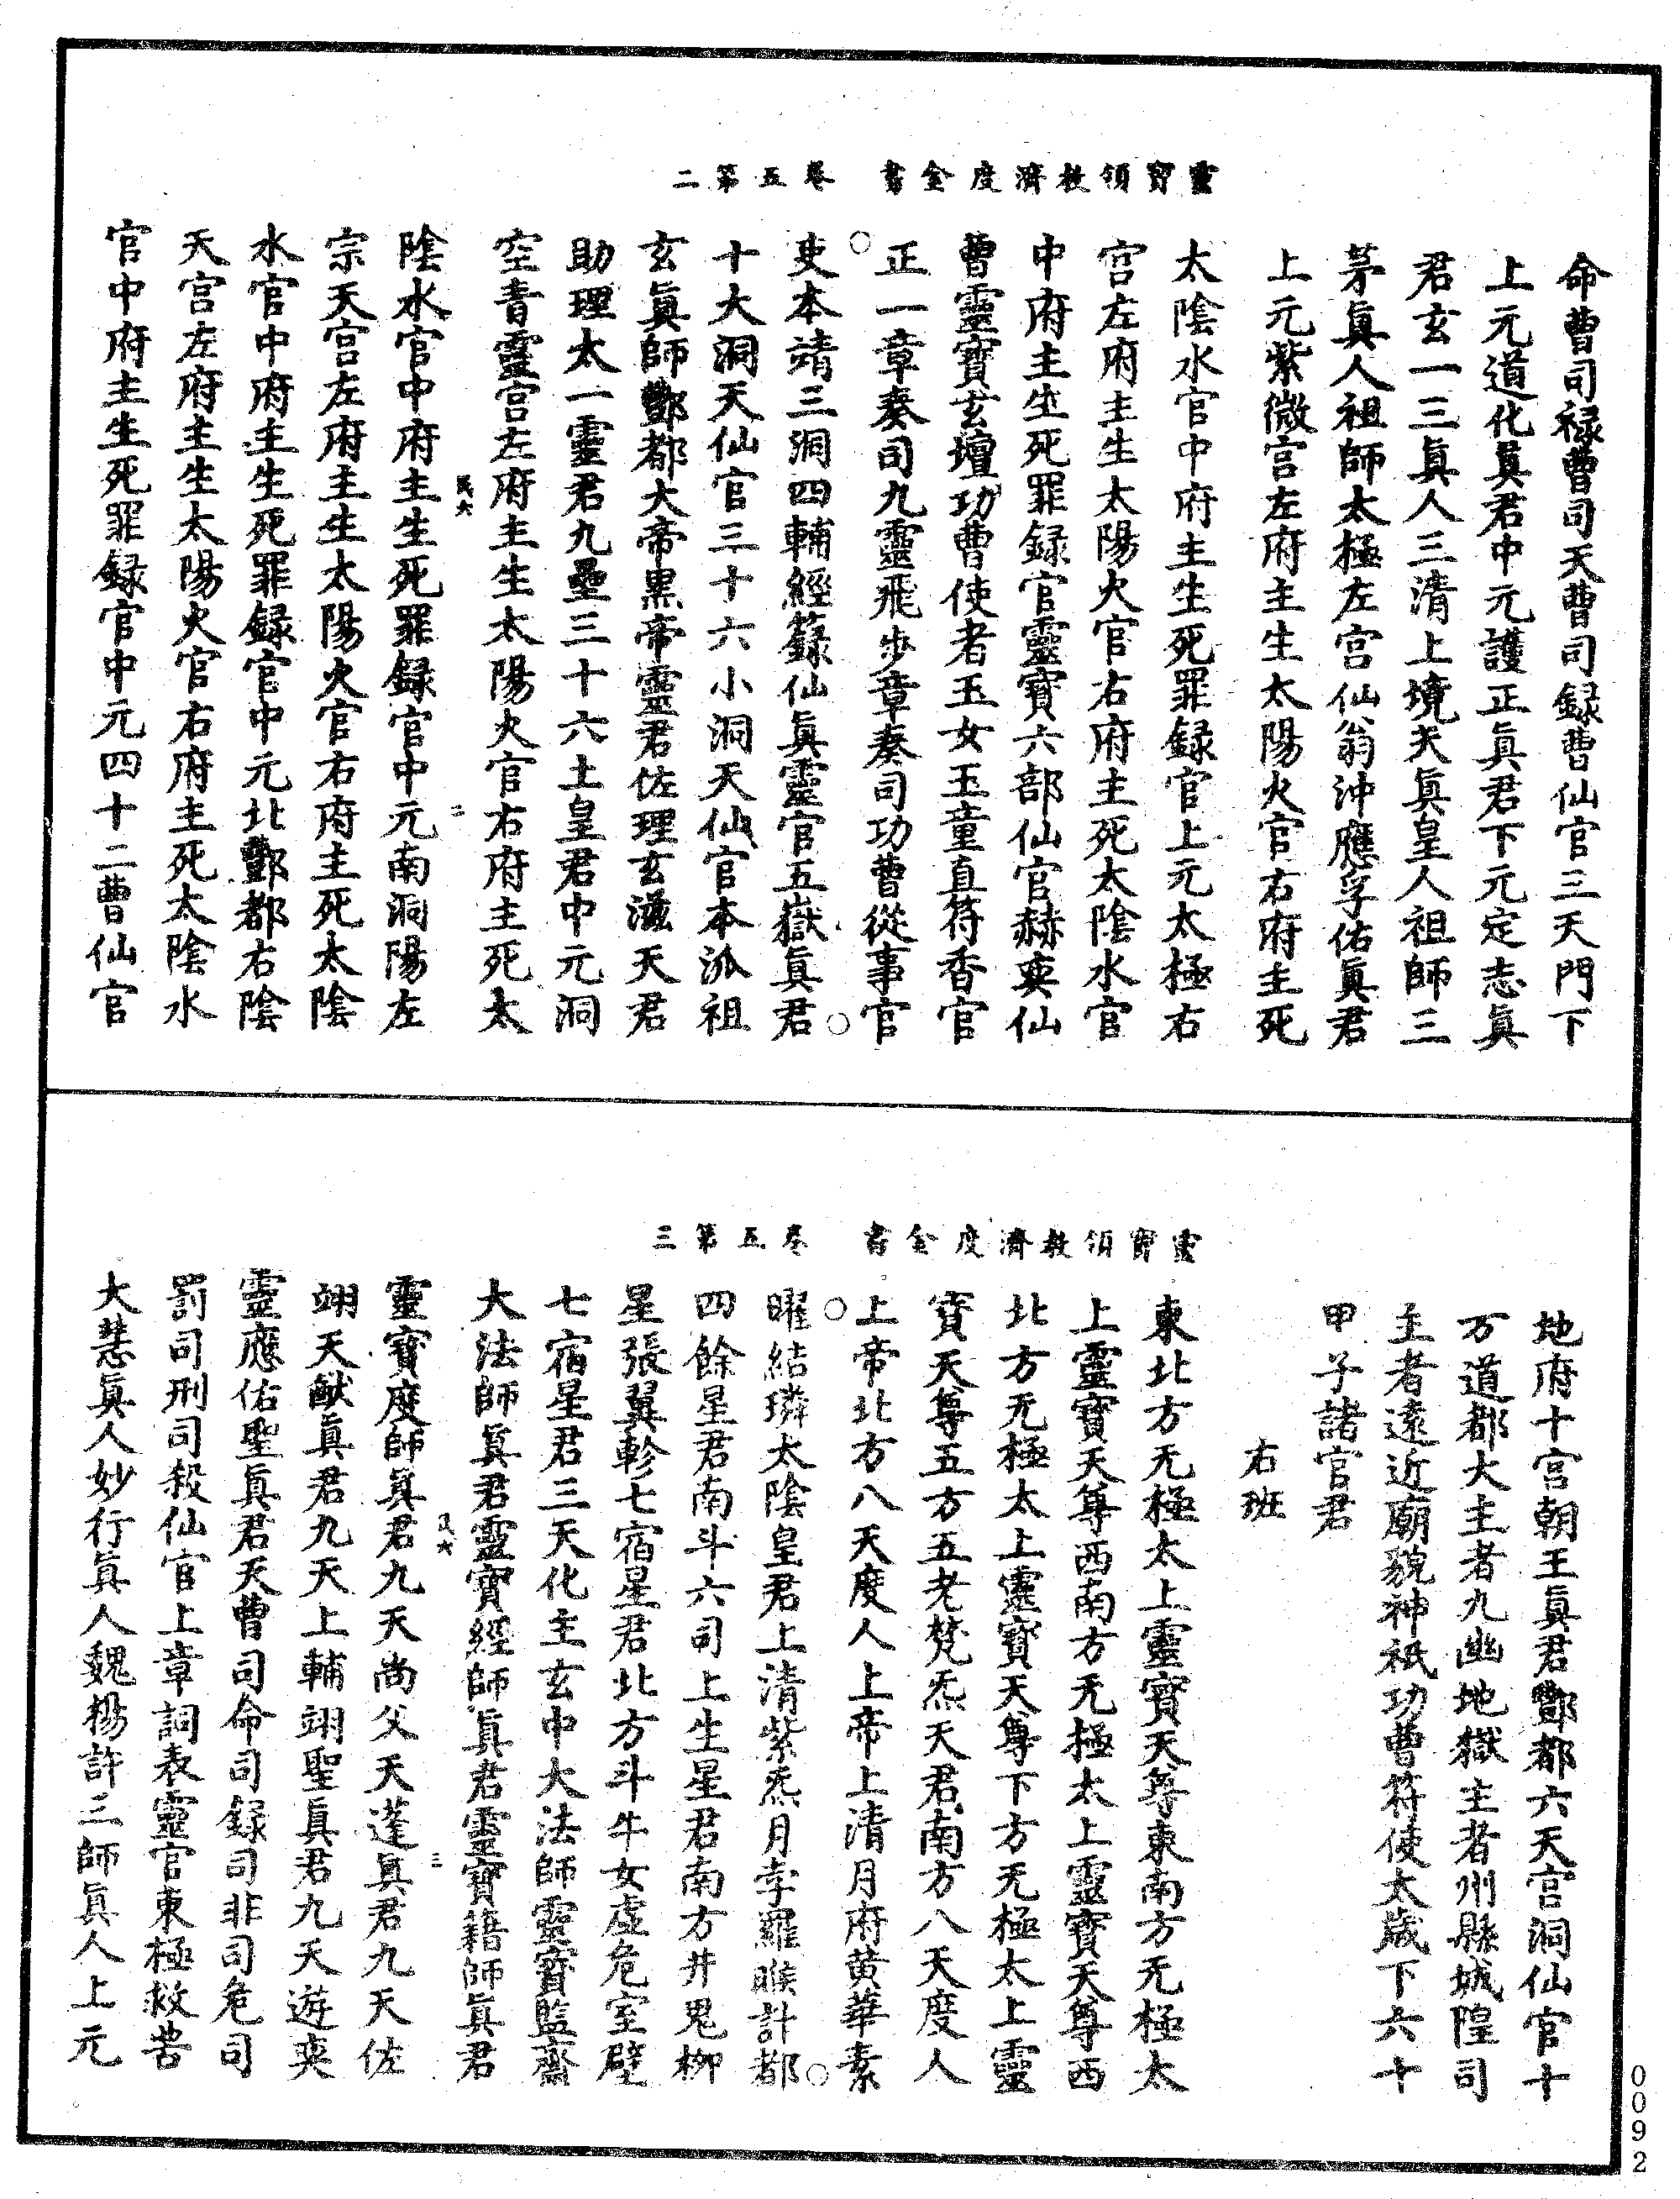 靈寶領教濟度金書　卷五第二
命曹司祿曹司天曹司録曹仙官三天門下
上元道化眞君中元護正眞君下元定志眞
君玄一三眞人三清上境天眞皇人祖師三
茅眞人祖師太極左宫仙翁沖應孚佑眞君
上元紫微宫左府主生太陽火官右府主死
太陰水官中府主生死罪録官上元太極右
宫左府主生太陽火官右府主死太陰水官
中府主生死罪録官靈寶六部仙官赫奕仙
曹靈寶玄壇功曹使者玉女玉童直符香官
正一章奏司九靈飛步章奏司功曹從事官
吏本靖三洞四輔經籙仙眞靈官五嶽眞君
十大洞天仙官三十六小洞天仙官本派祖
玄眞師酆都大帝黒帝靈君佐理玄滋天君
助理太一靈君九壘三十六土皇君中元洞
空青靈宫左府主生太陽火官右府主死太
陰水官中府主生死罪録官中元南洞陽左
宗天宫左府主生太陽火官右府主死太陰
水官中府主生死罪録官中元北酆都右陰
天宫左府主生太陽火官右府主死太陰水
官中府主生死罪録官中元四十二曹仙官
二
靈寶領教濟度金書　卷五第三
地府十宫朝王眞君酆都六天宫洞仙官十
方道都大主者九幽地獄主者州縣城隍司
主者遠近廟貌神祇功曹符使太歳下六十
甲子諸官君
右班
東北方无極太上靈寶天尊東南方无極太
上靈寶天尊西南方无極太上靈寶天尊西
北方无極太上靈寶天尊下方无極太上靈
寶天尊五方五老梵炁天君南方八天度人
上帝北方八天度人上帝上清月府黄華素
曜結璘太陰皇君上清紫炁月孛羅睺計都
四餘星君南斗六司上生星君南方井鬼柳
星張翼軫七宿星君北方斗牛女虚危室壁
七宿星君三天化主玄中大法師靈寶監齋
大法師眞君靈寶經師眞君靈寶籍師眞君
靈寶度師眞君九天尚父天蓬眞君九天佐
翊天猷眞君九天上輔翊聖眞君九天遊奕
靈應佑聖眞君天曹司命司録司非司危司
罰司刑司殺仙官上章詞表靈官東極救苦
大慧眞人妙行眞人魏楊許三師眞人上元
三
0092